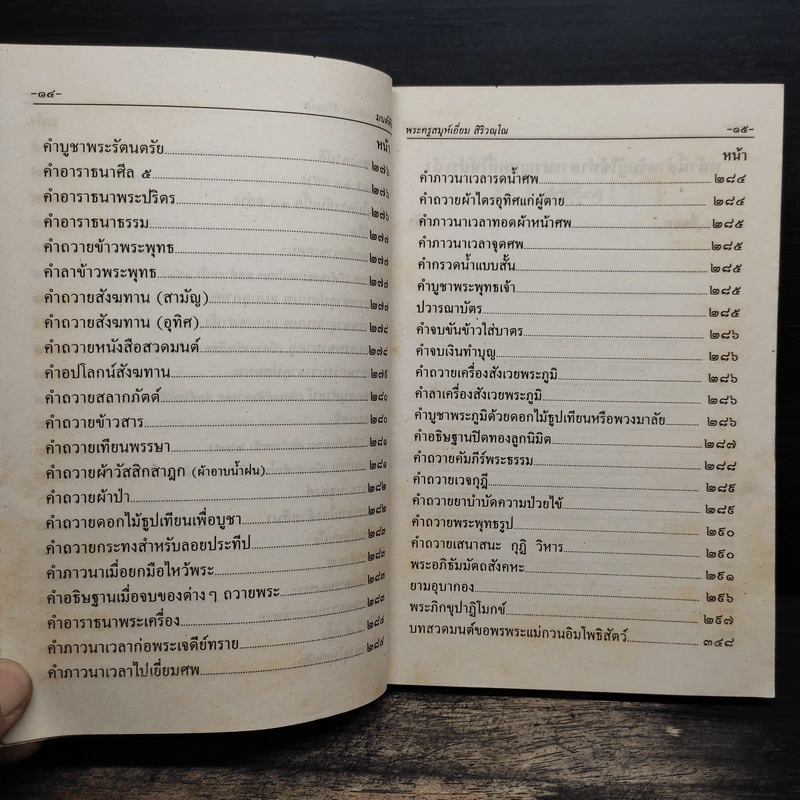 -๑๔-
หน้า
คำบูชาพระรัตนตรัย ๒๗๖
คำอาราธนาศีล ๕ ๒๗๖
คำอาราธนาพระปริตร ๒๗๖
คำอาราธนาธรรม ๒๗๗
คำถวายข้าวพระพุทธ ๒๗๗
คำลาข้าวพระพุทธ ๒๗๗
คำถวายสังฆทาน (สามัญ) ๒๗๗
คำถวายสังฆทาน (อุทิศ) ๒๗๘
คำถวายหนังสือสวดมนต์ ๒๗๘
คำอปโลกน์สังฆทาน ๒๗๙
คำถวายสลากภัตต์ ๒๘๐
คำถวายข้าวสาร ๒๘๐
คำถวายเทียนพรรษา ๒๘๑
คำถวายผ้าวัสสิกสาฎก (ผ้าอาบน้ำฝน) ๒๘๑
คำถวายผ้าป่า ๒๘๒
คำถวายดอกไม้ธูปเทียนเพื่อบูชา ๒๘๒
คำถวายกระทงสำหรับลอยประทีป ๒๘๓
คำภาวนาเมื่อยกมือไหว้พระ ๒๘๓
คำอธิษฐานเมื่อจบของต่างๆ ถวายพระ ๒๘๓
คำอาราธนาพระเครื่อง ๒๘๓
คำภาวนาเวลาก่อพระเจดีย์ทราย ๒๘๔
คำภาวนาเวลาไปเยี่ยมศพ ๒๘๔
พระครูสมุห์เอี่ยม สิริวณฺโณ -๑๕-
หน้า
คำภาวนาเวลารดน้ำศพ ๒๘๔
คำถวายผ้าไตรอุทิศแก่ผู้ตาย ๒๘๔
คำภาวนาเวลาทอดผ้าหน้าศพ ๒๘๕
คำภาวนาเวลาจุดศพ ๒๘๕
คำกรวดน้ำแบบสั้น ๒๘๕
คำบูชาพระพุทธเจ้า ๒๘๕
ปวารณาบัตร ๒๘๕
คำจบขันข้าวใส่บาตร ๒๘๖
คำจบเงินทำบุญ ๒๘๖
คำถวายเครื่องสังเวยพระภูมิ ๒๘๖
คำลาเครื่องสังเวยพระภูมิ ๒๘๖
คำบูชาพระภูมิด้วยดอกไม้ธูปเทียนหรือพวงมาลัย ๒๘๖
คำอธิษฐานปิดทองลูกนิมิต ๒๘๗
คำถวายคัมภีร์พระธรรม ๒๘๘
คำถวายเวจกุฎี ๒๘๙
คำถวายยาบำบัดความป่วยไข้ ๒๘๙
คำถวายพระพุทธรูป ๒๙๐
คำถวายเสนาสนะ กุฏิ วิหาร ๒๙๐
พระอภิธัมมัตถสังคหะ ๒๙๑
ยามอุบากอง ๒๙๖
พระภิกขุปาฏิโมกข์ ๒๙๗
บทสวดมนต์ขอพรพระแม่กวนอิมโพธิสัตว์ ๓๔๘